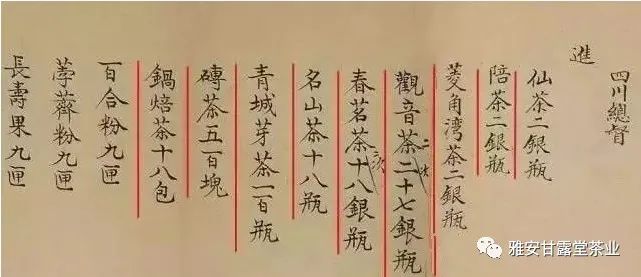 四川總督
進
仙茶二銀瓶
陪茶二銀瓶
菱角湾茶二銀瓶
觀音茶二十七銀瓶
二次
春茗茶十八銀瓶
二次
名山茶十八瓶
青城芽茶一百瓶
磚茶五百塊
鍋焙茶十八包
百合粉九匣
荸薺粉九匣
長壽果九匣
雅安甘露堂茶业